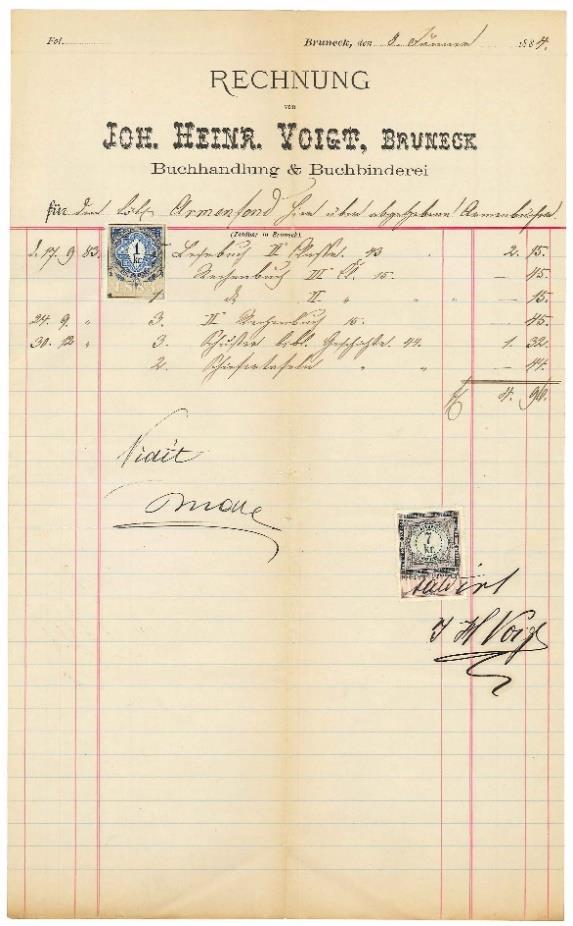 Fol.
Bruneck, den 8. Jänner 1884.
RECHNUNG
von
JOH. HEINR. VOIGT, BRUNECK
Buchhandlung & Buchbinderei
für den löbl. Armenfond hier über abgegebene Armenbücher.
(Zahlbar in Bruneck).
d. 17. 9 83. Lesebuch II 43 2. 15.
Rechenbuch III 15. — 45.
1 II " " — 15.
24. 9. " 3. II Rechenbuch 15. — 45.
30. 12 " 3. Schuster bibl. Geschichte 44. 1. 32.
2. Schiefertafeln " " — 44.
4. 96.
1 kr.
Vidit
7 Kr.
saldirt
J H Voigt